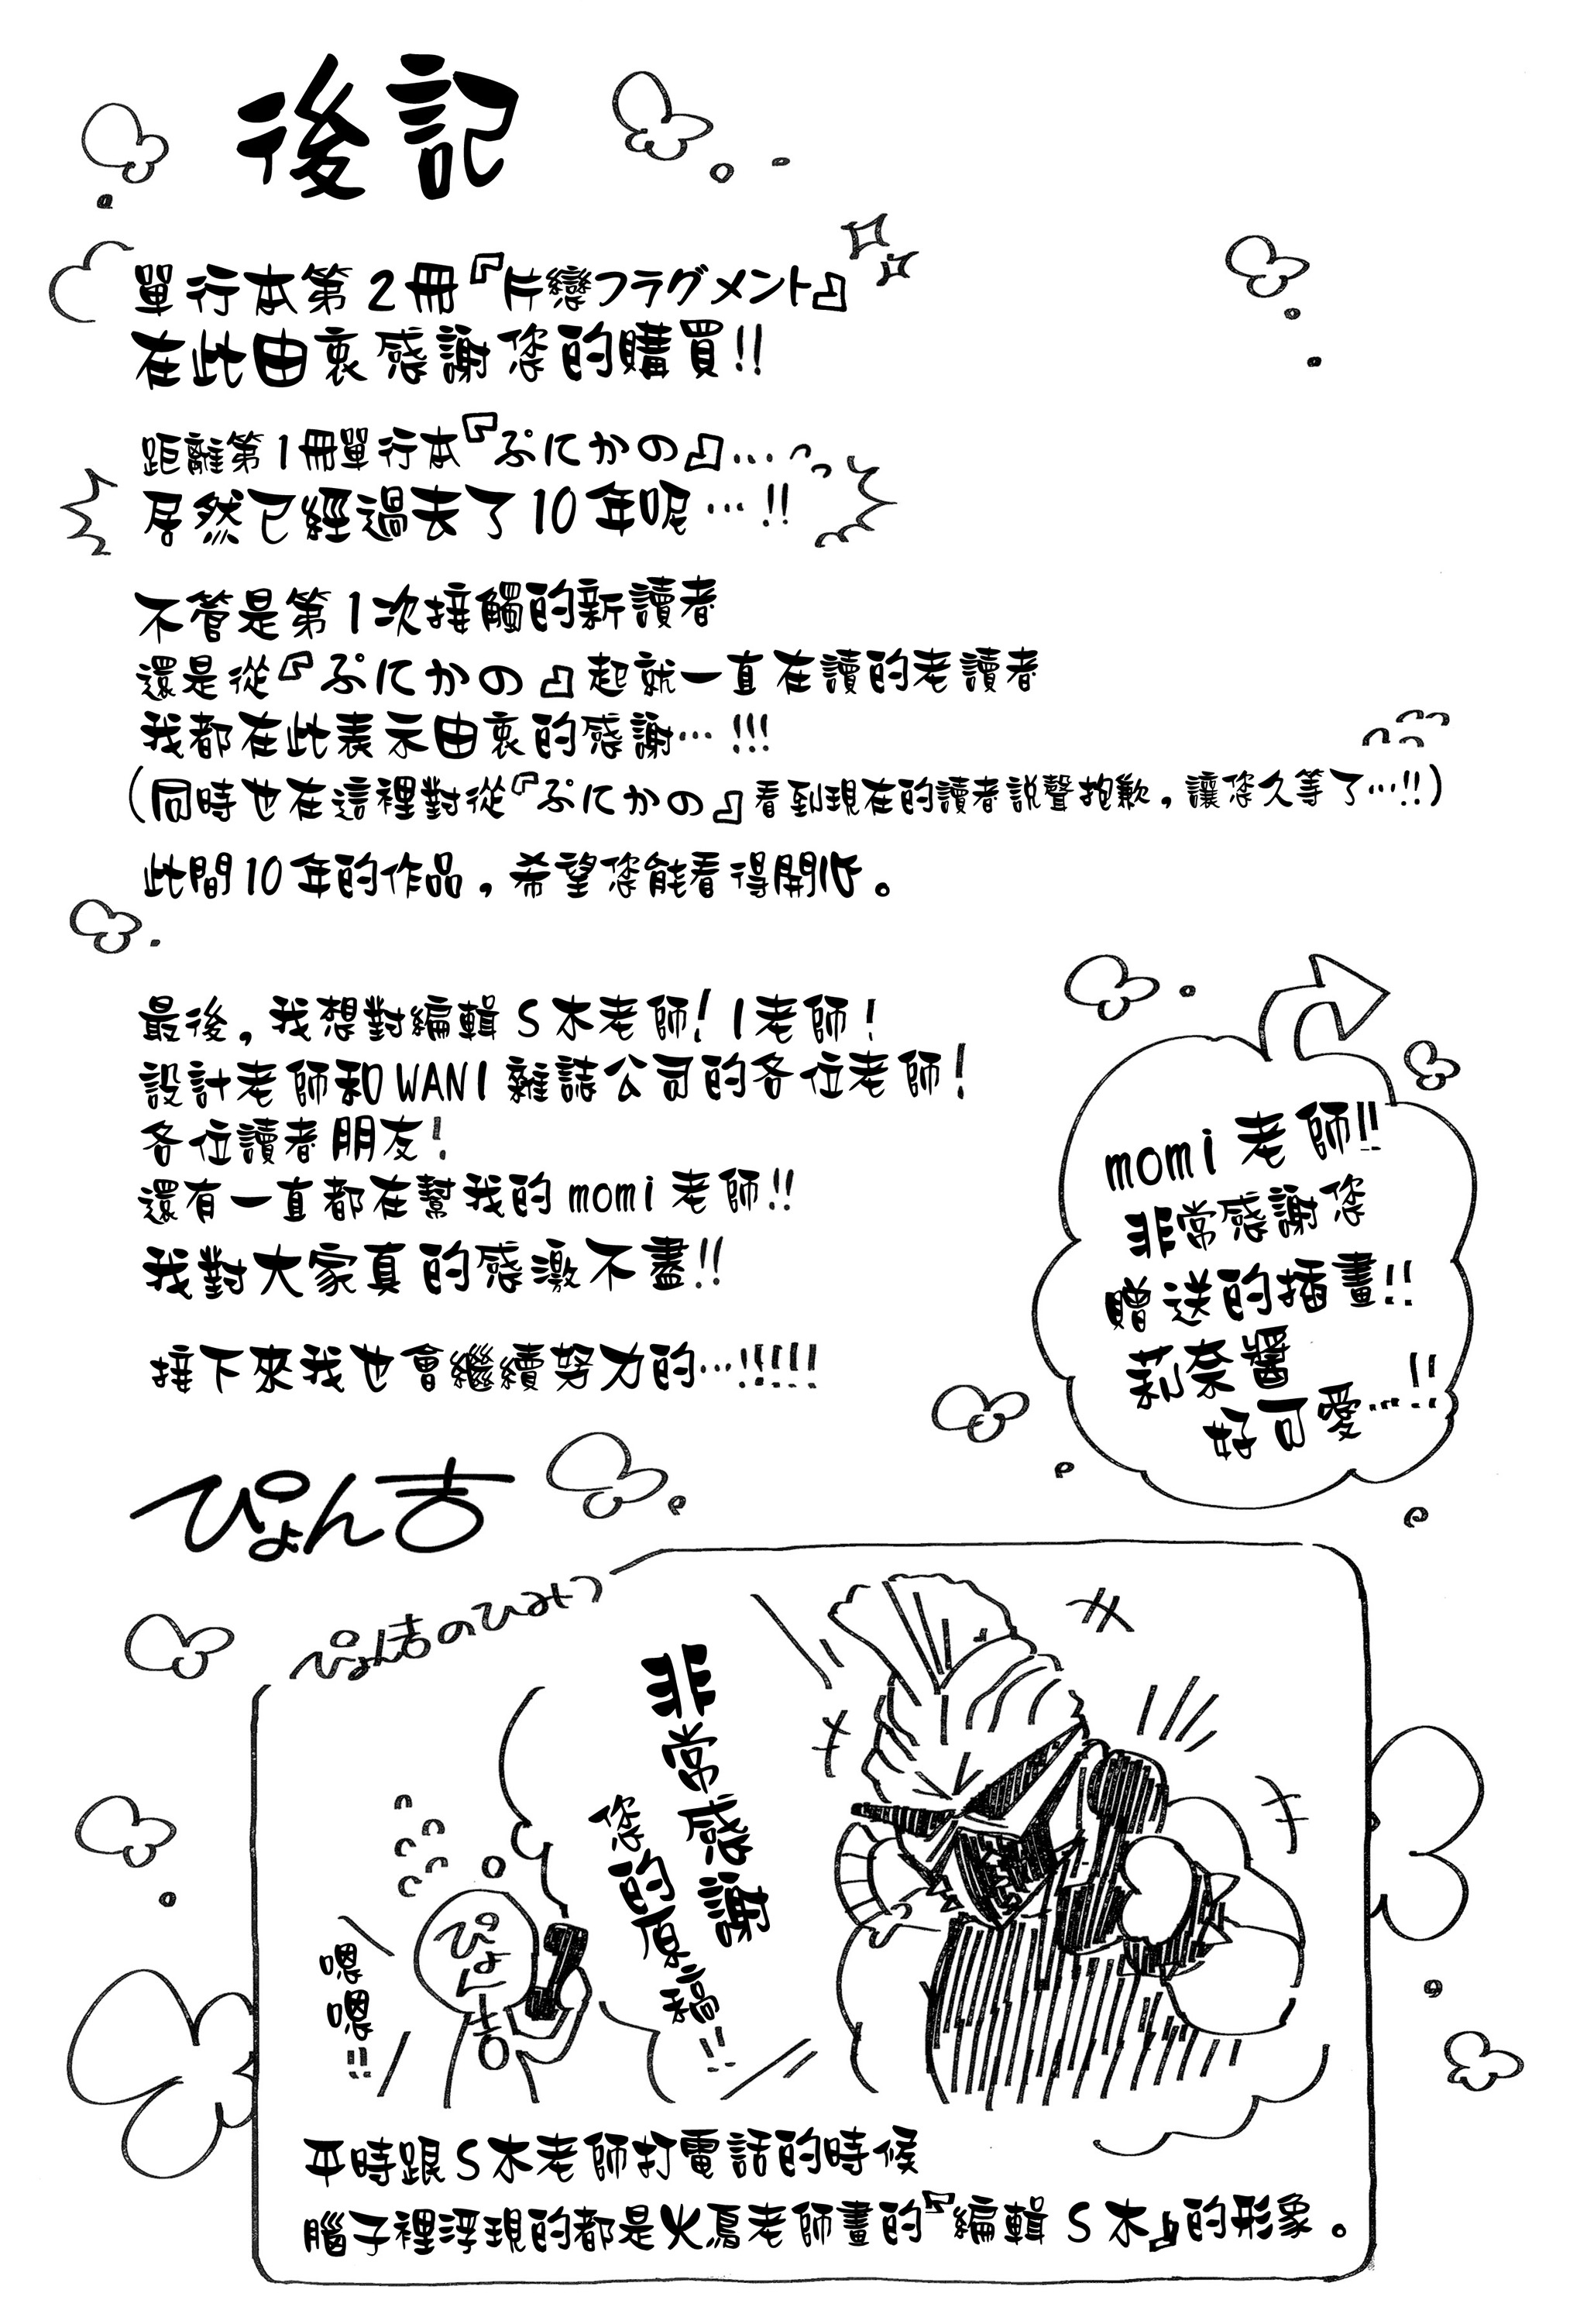 後記
單行本第2冊『片戀フラグメント』
在此由衷感謝您的購買!!
距離第1冊單行本『ぷにかの』…
居然已經過去了10年呢…!!
不管是第1次接觸的新讀者
還是從『ぷにかの』起就一直在讀的老讀者
我都在此表示由衷的感謝…!!!
(同時也在這裡對從『ぷにかの』看到現在的讀者說聲抱歉,讓您久等了…!!)
此間10年的作品,希望您能看得開心。
最後,我想對編輯S木老師!I老師!
設計老師和WANI雜誌公司的各位老師!
各位讀者朋友!
還有一直都在幫我的momi老師!!
我對大家真的感激不盡!!
接下來我也會繼續努力的…!!!!!
momi老師!!
非常感謝您
贈送的插畫!!
莉奈醬
好可愛…!!
ぴょん吉
ぴょん吉のひみつ
非常感謝
您的原稿!!
ぴょん吉
嗯嗯!!
平時跟S木老師打電話的時候
腦子裡浮現的都是火鳥老師畫的『編輯S木』的形象。